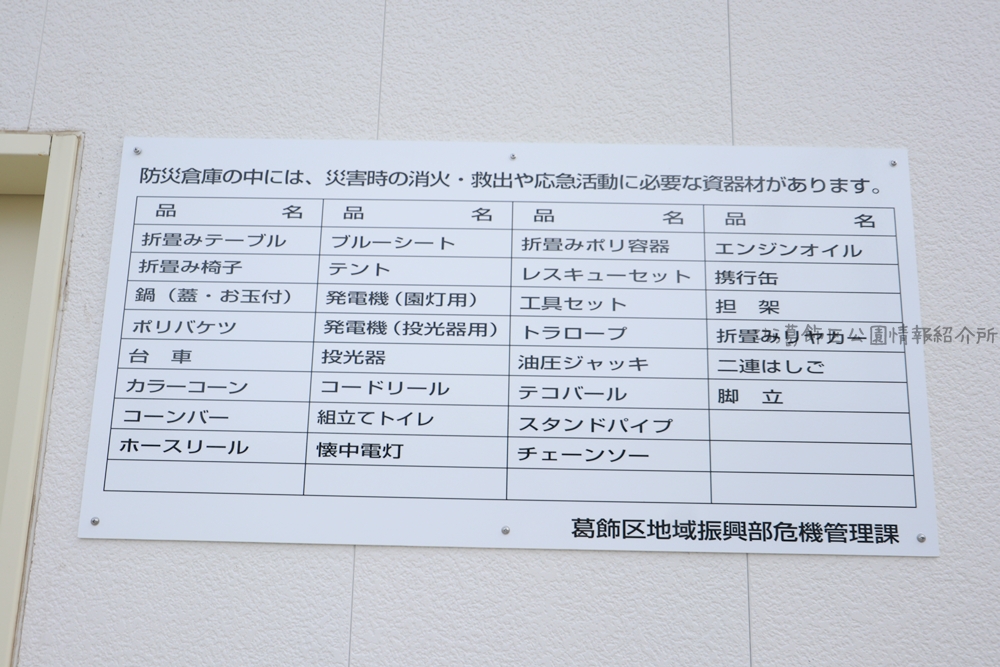 防災倉庫の中には、災害時の消火・救出や応急活動に必要な資器材があります。
品 名 品 名 品 名 品 名
折畳みテーブル ブルーシート 折畳みポリ容器 エンジンオイル
折畳み椅子 テント レスキューセット 携行缶
鍋（蓋・お玉付） 発電機（園灯用） 工具セット 担 架
ポリバケツ 発電機（投光器用） トラロープ 折畳みリヤカー
台 車 投光器 油圧ジャッキ 二連はしご
カラーコーン コードリール テコバール 脚 立
コーンバー 組立てトイレ スタンドパイプ
ホースリール 懐中電灯 チェーンソー
葛飾区地域振興部危機管理課
公園情報紹介所